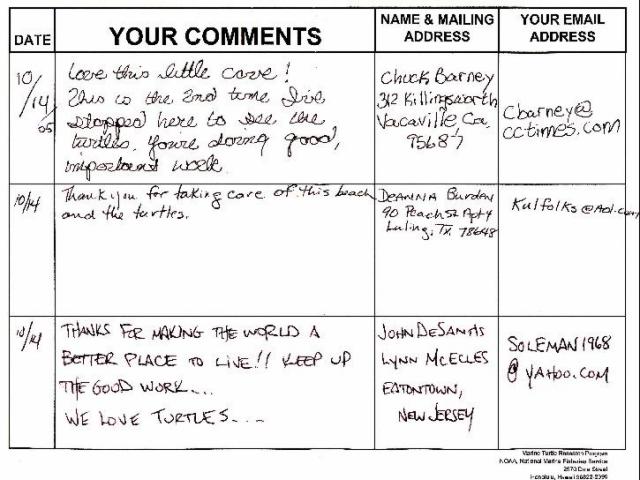 DATE
YOUR COMMENTS
NAME & MAILING
ADDRESS
YOUR EMAIL
ADDRESS
10/14/05
Love this little cove!
This is the 2nd time I've
stopped here to see the
turtles. You're doing good,
important work.
Chuck Barney
312 Killingsworth
Vacaville Ca,
95687
Cbarney@
cctimes.com
10/14
Thank you for taking care of this beach
and the turtles.
DeANNA Burden
90 Peach St Apt 4
Luling, TX. 78648
Kulfolks@Aol.com
10/14
THANKS FOR MAKING THE WORLD A
BETTER PLACE TO LIVE!! KEEP UP
THE GOOD WORK....
WE LOVE TURTLES....
JOHN DESANTIS
LYNN MCECLES
EATONTOWN,
NEW JERSEY
SOLEMAN1968
@YAHOO.COM
Marine Turtle Research Program
NOAA, National Marine Fisheries Service
2570 Dole Street
Honolulu, Hawaii 96822-2396